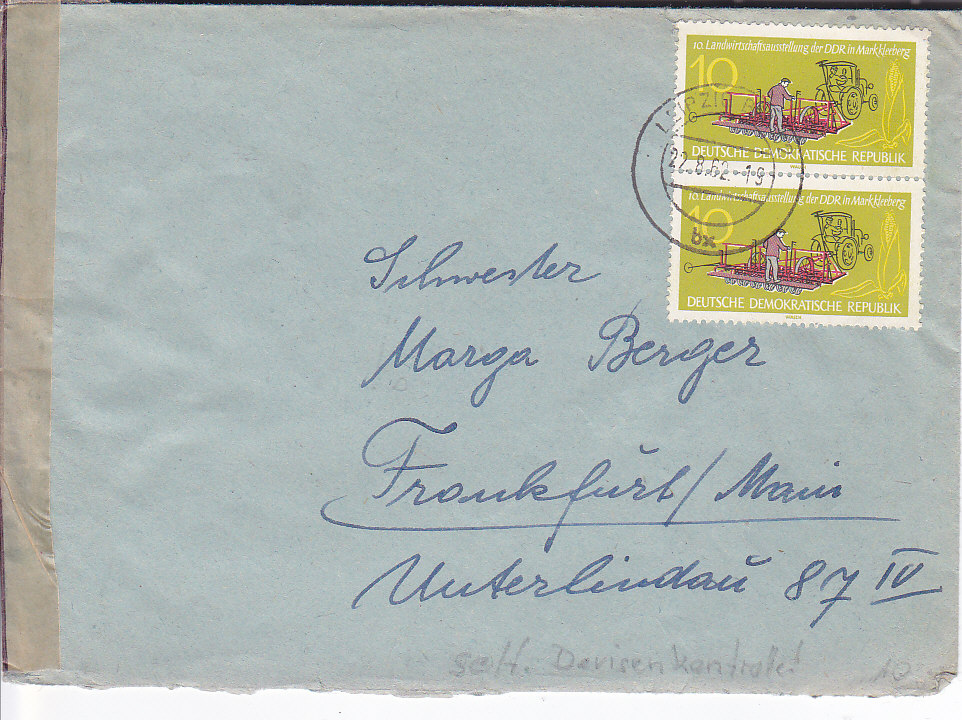 10. Landwirtschaftsausstellung der DDR in Markkleeberg
10
DEUTSCHE DEMOKRATISCHE REPUBLIK
10. Landwirtschaftsausstellung der DDR in Markkleeberg
10
DEUTSCHE DEMOKRATISCHE REPUBLIK
LEIPZIG
22.8.62.-19
bx
Schwester
Marga Berger
Frankfurt/Main
Unterlindau 87 IV
Devisenkontrolle!
10